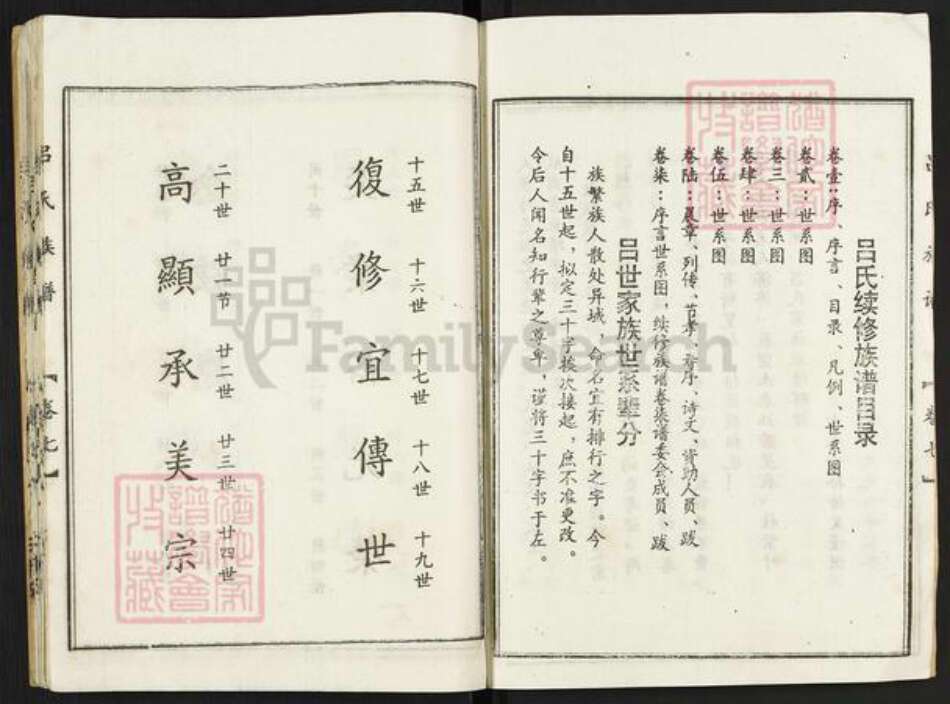 吕氏续修族谱目录
卷壹：序、序言、目录、凡例、世系图
卷贰：世系图
卷三：世系图
卷肆：世系图
卷伍：世系图
卷陆：宸章、列传、节孝、寿序、诗文、资助人员、跋
卷柒：序言世系图，续修族谱卷柒谱委会成员、跋
吕世家族世系辈分
族繁族人散处异域、命名宜有排行之字。今
自十五世起，拟定三十字挨次接起，庶不准更改。
令后人闻名知行辈之尊卑，谨将三十字书于左。
十五世 十六世 十七世 十八世 十九世
復修宜傳世
二十世 廿一节 廿二世 廿三世 廿四世
高顯承美宗
吕氏族譜
【卷七】
FamilySearch